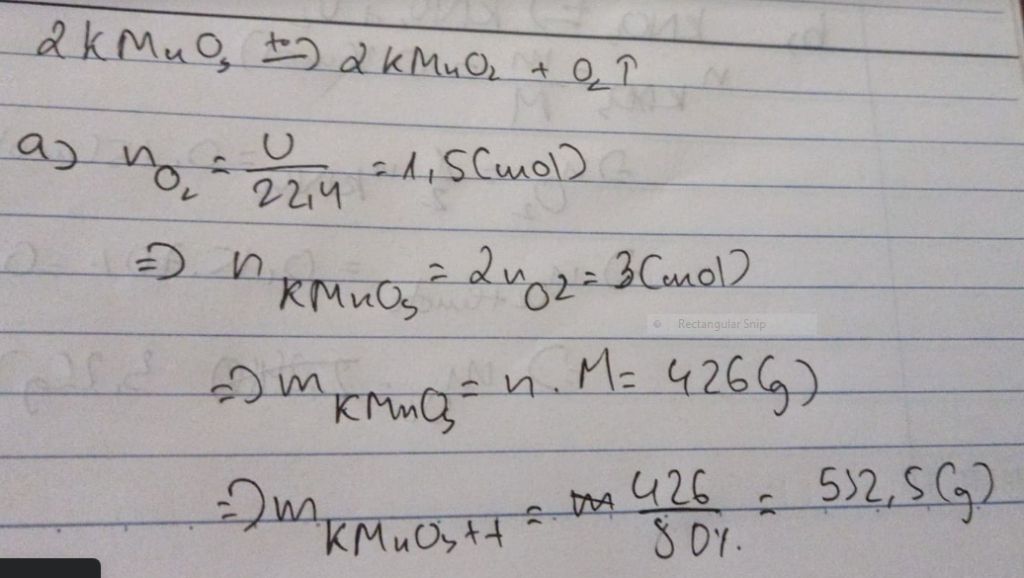 2KMnO3 t° => 2KMnO2 + O2 ↑
a) nO2 = V/22,4 = 1,5 (mol)
=> nKMnO3 = 2nO2 = 3 (mol)
Rectangular Snip
=> mKMnO3 = n . M = 426 (g)
=> mKMnO3 tt = 426/80% = 532,5 (g)